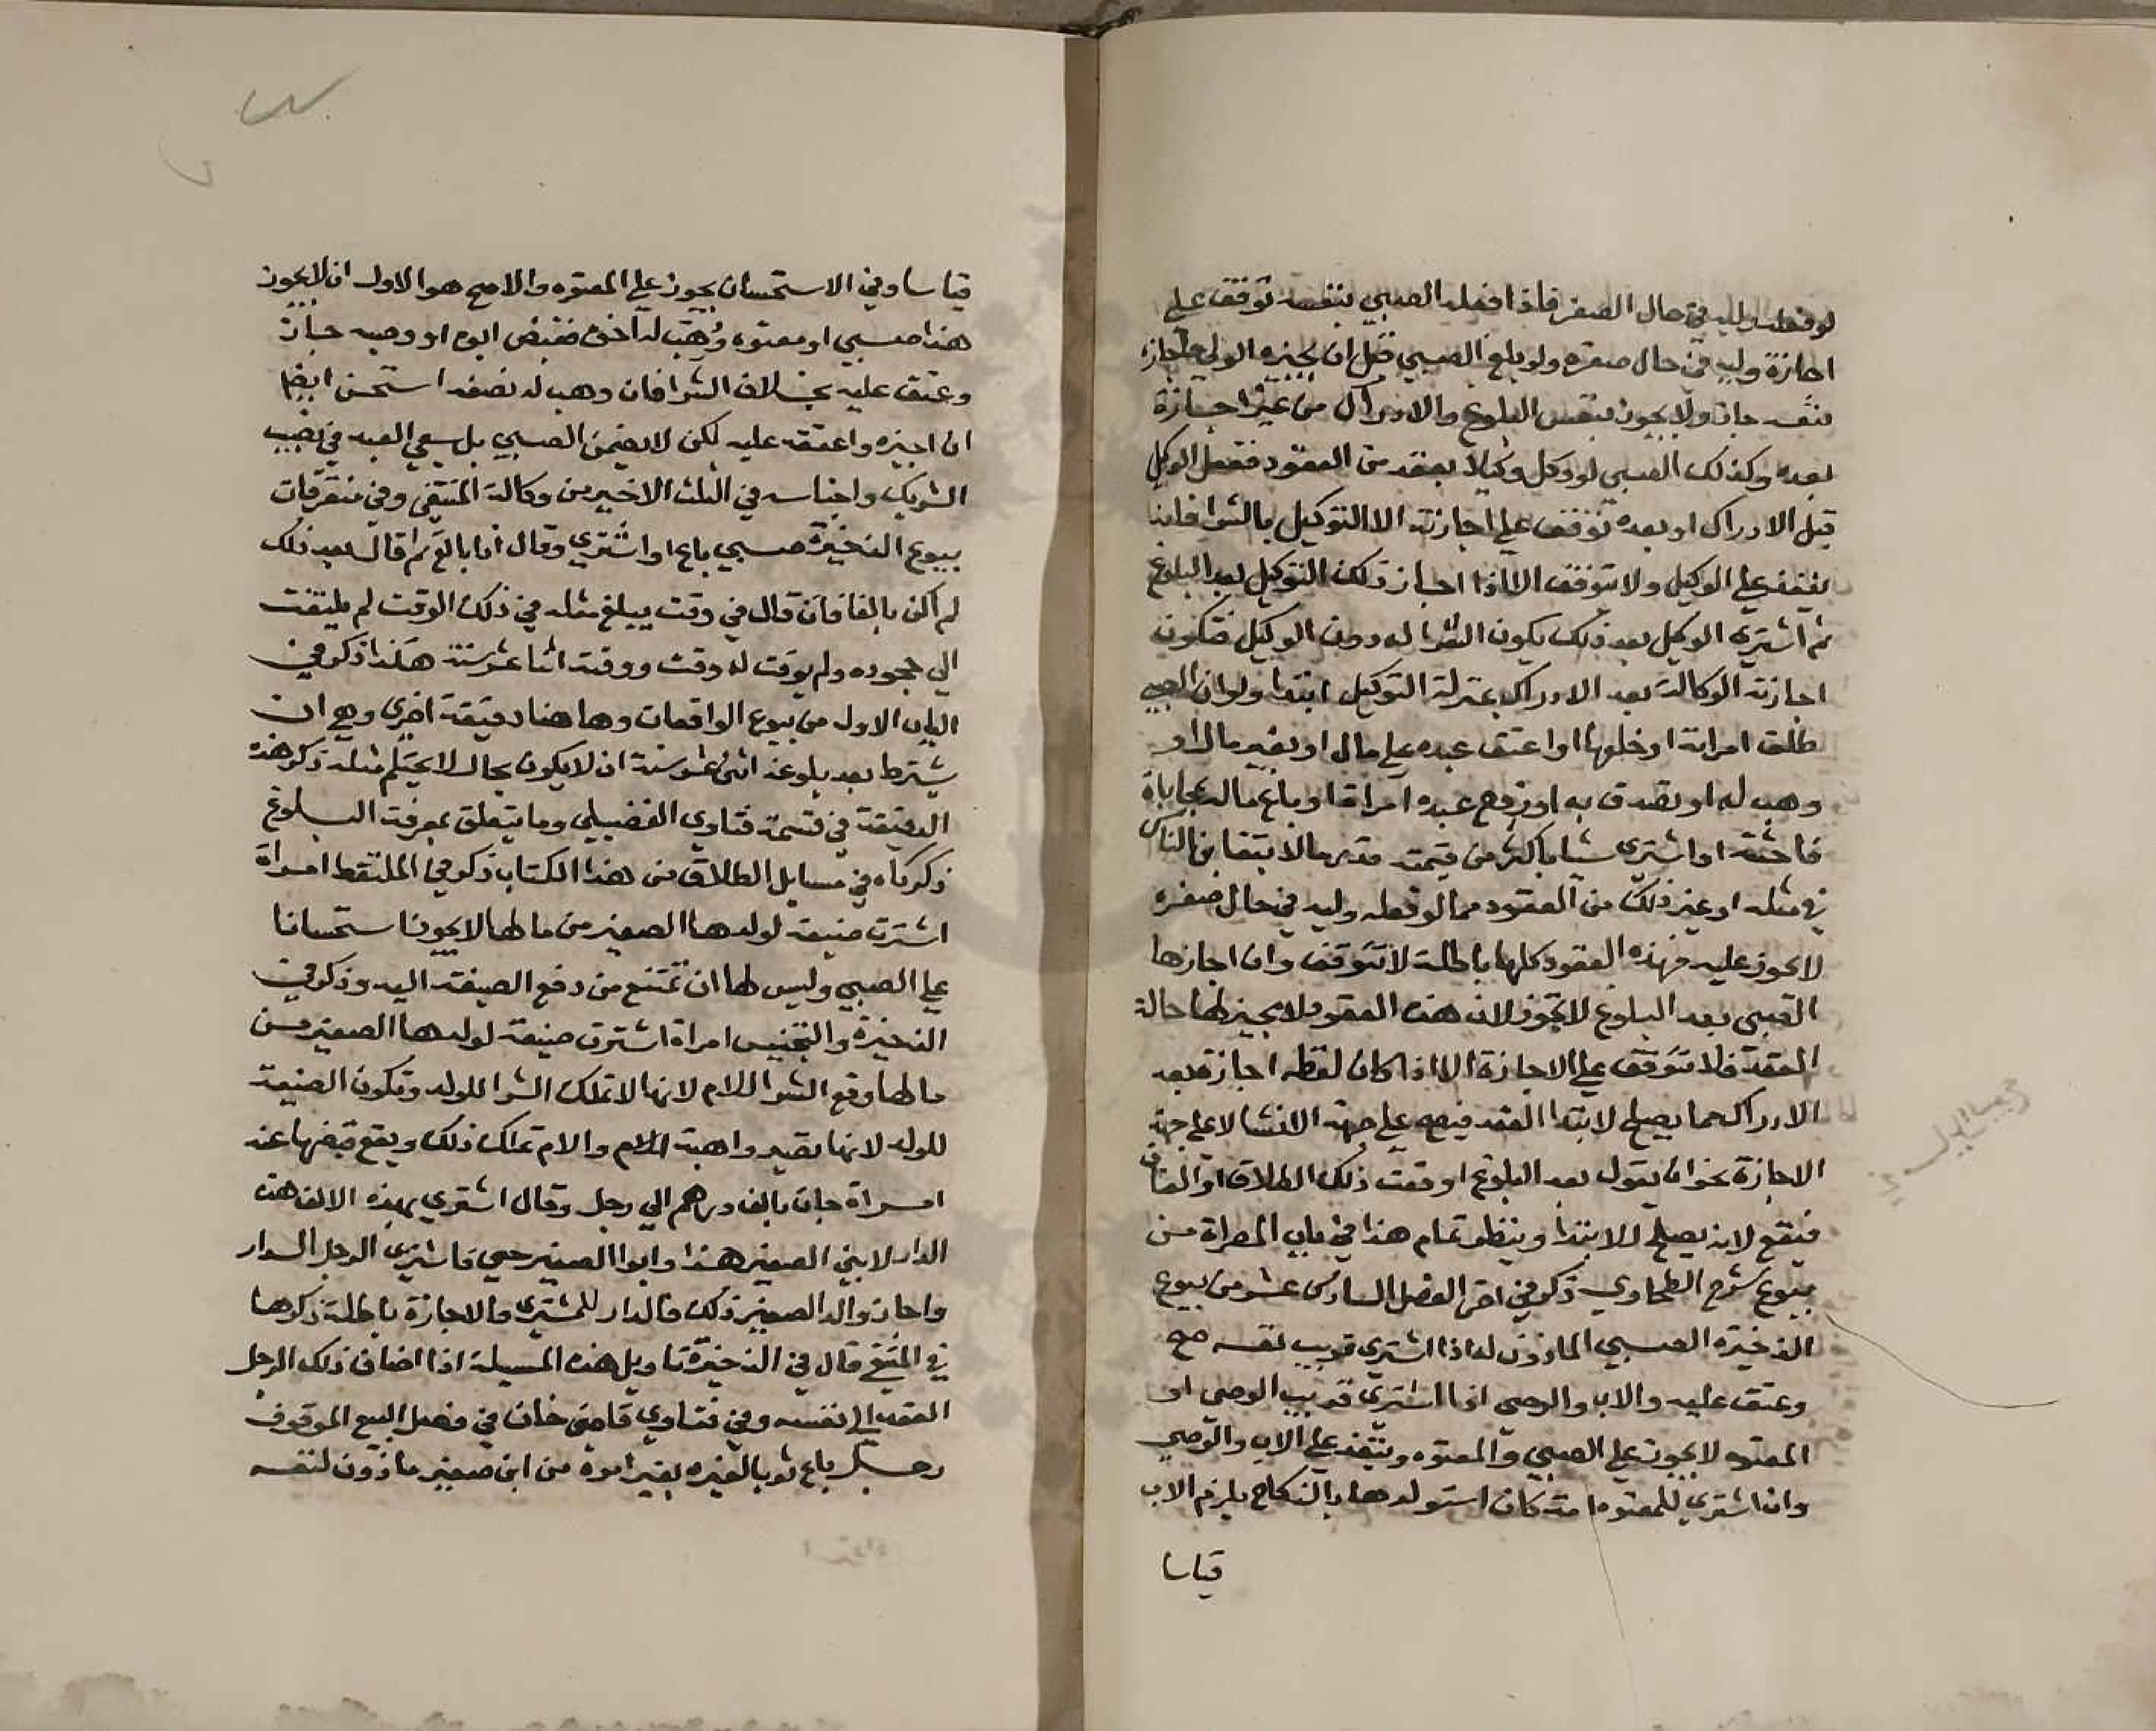 لو فعله وليه في حال الصغر فاذا فعله الصبي بنفسه توقف على
اجازة وليه في حال صغره ولو بلغ الصبي قبل ان يجيزه الولي فاجاز
بنفسه جاز ولا يجوز بنفس البلوغ والادراك من غير اجازة
بعده وكذلك الصبي لو وكل وكيلا بعقد من العقود ففعل الوكيل
قبل الادراك او بعده توقف على اجازته الا التوكيل بالشرا فانه
ينفذ على الوكيل ولا يتوقف الا اذا اجاز ذلك التوكيل بعد البلوغ
ثم اشترى الوكيل بعد ذلك يكون الشرا له دون الوكيل فتكون
اجازته الوكالة بعد الادراك بمنزلة التوكيل ابتدا ولو ان الصبي
طلق امراته او خلعها او اعتق عبده على مال او بغير مال او
وهب له او تصدق به او زوج عبده امراة او باع ماله بمحاباة
فاحشة او اشترى شيا باكثر من قيمته قدر ما لا يتغابن الناس
في مثله او غير ذلك من العقود مما لو فعله وليه في حال صغره
لا يجوز عليه فهذه العقود كلها باطلة لا تتوقف وان اجازها
الصبي بعد البلوغ لا تجوز لان هذه العقود لا مجيز لها حالة
العقد فلا تتوقف على الاجازة الا اذا كان لفظه اجازة بعد
الادراك مما يصلح لابتدا العقد فيصح على جهة الانشا لا على جهة
الاجازة نحو ان يقول بعد البلوغ اوقعت ذلك الطلاق او العتاق
فيقع لانه يصلح للابتدا وينظر تمام هذا في باب المصراة من
بيوع شرح الطحاوي ذكر في اخر الفصل السادس عشر من بيوع
الذخيرة الصبي الماذون له اذا اشترى قريب نفسه صح
وعتق عليه والاب والوصي اذا اشترى قريب الوصي او
المعتوه لا يجوز على الصبي والمعتوه وينفذ على الاب والوصي
وان اشترى للمعتوه امة كان استولدها بالنكاح يلزم الاب
قياسا
قياسا وفي الاستحسان يجوز على المعتوه والاصح هو الاول ان لا يجوز
هذا صبي او معتوه وهب له اخوه فقبض ابوه او وصيه جاز
وعتق عليه بخلاف الشرا فان وهب له نصفه استحسن ايضا
ان اجيزه واعتقه عليه لكن لا يضمن الصبي بل يسعى العبد في نصيب
الشريك واجناسه في الثلث الاخير من وكالة المنتقى وفي متفرقات
بيوع الذخيرة صبي باع او اشترى وقال انا بالغ ثم قال بعد ذلك
لم اكن بالغا فان قال في وقت يبلغ مثله في ذلك الوقت لم يلتفت
الى جحوده ولم يوقت له وقت ووقته اثنا عشر سنة هكذا ذكر في
الباب الاول من بيوع الواقعات وها هنا دقيقة اخرى وهي ان
يشترط بعد بلوغه اثني عشر سنة ان لا يكون بحال لا يحتلم مثله ذكر هذه
الدقيقة في قسمة فتاوي الفضيلي وما يتعلق بمعرفة البلوغ
ذكرناه في مسايل الطلاق من هذا الكتاب ذكر في الملتقط امراة
اشترت ضيعة لولدها الصغير من مالها لا يجوز استحسانا
على الصبي وليس لها ان تمتنع من دفع الضيعة اليه وذكر في
الذخيرة والتجنيس امراة اشترت ضيعة لولدها الصغير من
مالها وقع الشرا للام لانها لا تملك الشرا للولد وتكون الضيعة
للولد لانها تصير واهبة والام تملك ذلك ويقع قبضها عنه
امراة جات بالف درهم الى رجل وقال اشتري بهذه الالف هذه
الدار لابني الصغير هذا وابوا الصغير حي فاشترى الرجل الدار
واجاز والد الصغير ذلك فالدار للمشتري والاجازة باطلة ذكرها
في المنتقى قال في الذخيرة تاويل هذه المسيلة اذا اضاف ذلك الرجل
العقد الى نفسه وفي فتاوي قاضي خان في فصل البيع الموقوف
رجل باع ثوبا لغيره بغير امره من ابن صغير ماذون لنفسه